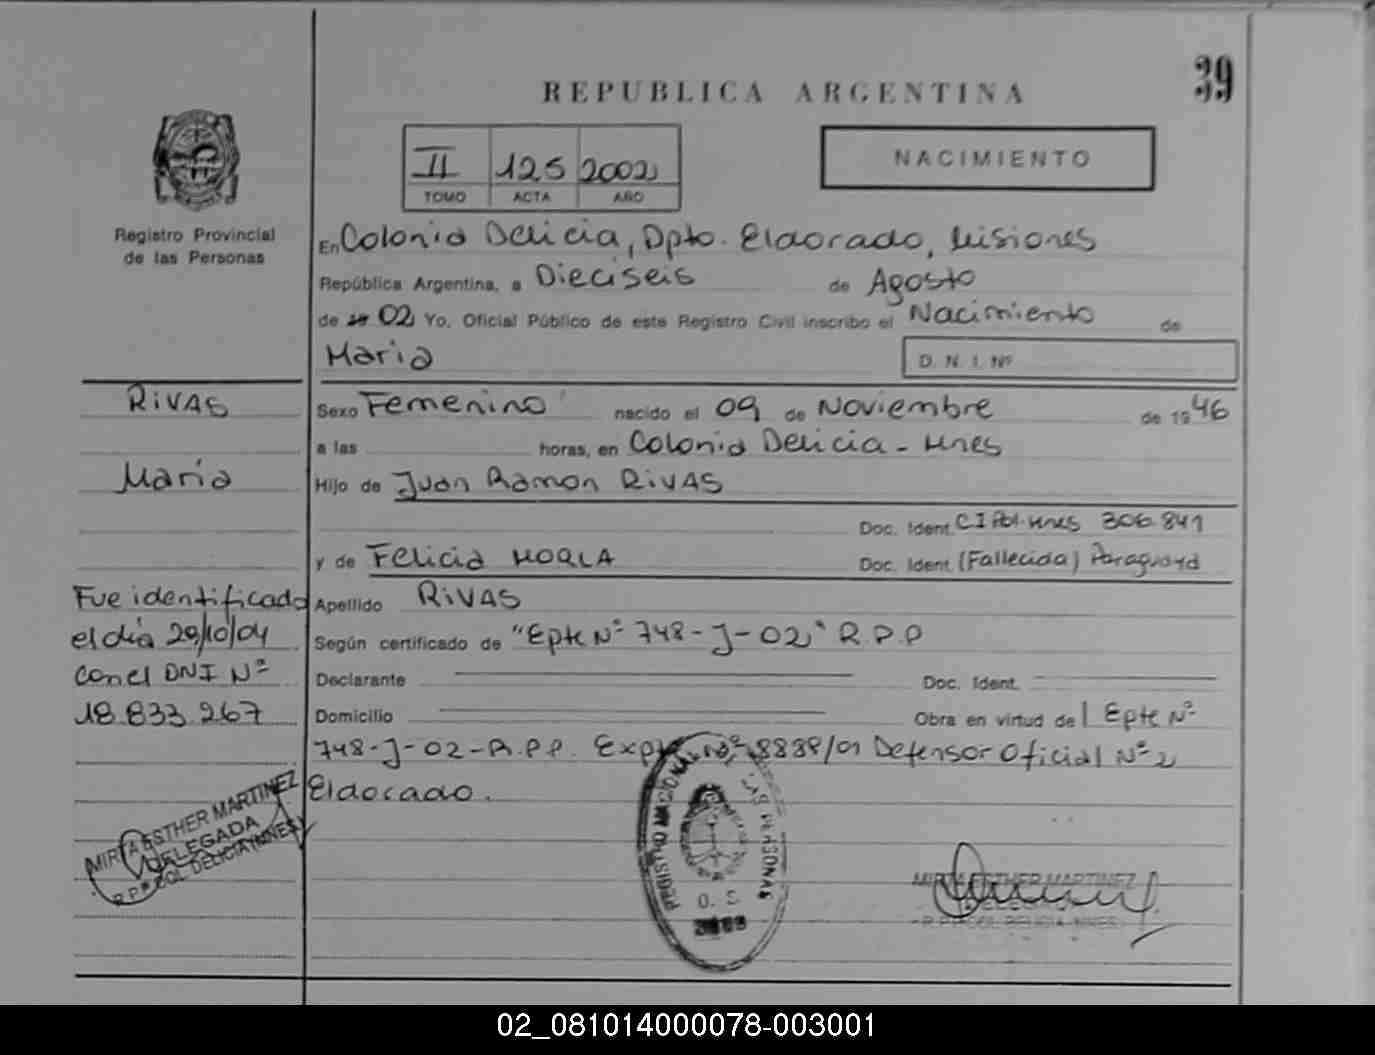 39
REPUBLICA ARGENTINA
II 125 2002
TOMO ACTA AÑO
NACIMIENTO
Registro Provincial
de las Personas
En Colonia Delicia, Dpto. Eldorado, Misiones
República Argentina, a Dieciseis de Agosto
de 19 02 Yo, Oficial Público de este Registro Civil inscribo el Nacimiento de
Maria
D. N. I. Nº
Sexo Femenino nacido el 09 de Noviembre de 19 46
a las horas, en Colonia Delicia - Mnes
Hijo de Juan Ramon RIVAS
Doc. Ident. CI Pol. Mnes 306.841
y de Felicia Doc. Ident. (Fallecida) Paraguaya
Apellido RIVAS
Según certificado de "Epte Nº 748-J-02" R.P.P
Declarante Doc. Ident.
Domicilio Obra en virtud de Epte Nº
748-J-02-R.P.P. Expte Nº Defensor Oficial Nº 2
Eldorado.
RIVAS
Maria
Fue identificado
el día 20/10/04
con el DNI Nº
18.833.267
MIRTA ESTHER MARTINEZ
DELEGADA
R.P.P. COL. DELICIA (MNES)
REGISTRO NACIONAL DE LAS PERSONAS
O. S.
MIRTA ESTHER MARTINEZ
R.P.P. COL. DELICIA (MNES)
02_081014000078-003001